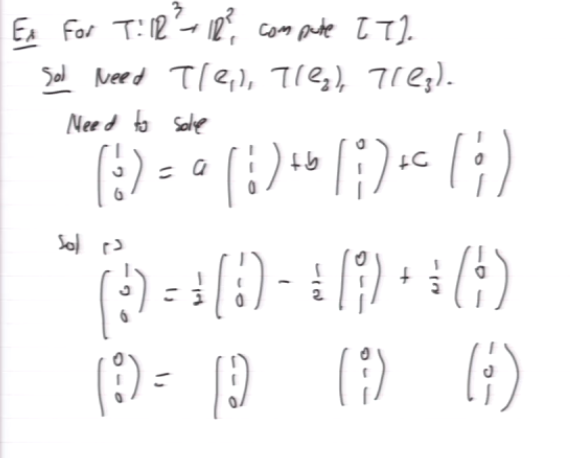 Ex For T: ℝ³ → ℝ², compute [T].
Sol Need T(e₁), T(e₂), T(e₃).
Need to solve
(1 0 0) = a (1 1 0) + b (0 1 1) + c (1 0 1)
Sol is
(1 0 0) = 1/2 (1 1 0) - 1/2 (0 1 1) + 1/2 (1 0 1)
(0 1 0) = (1 1 0) (0 1 1) (1 0 1)